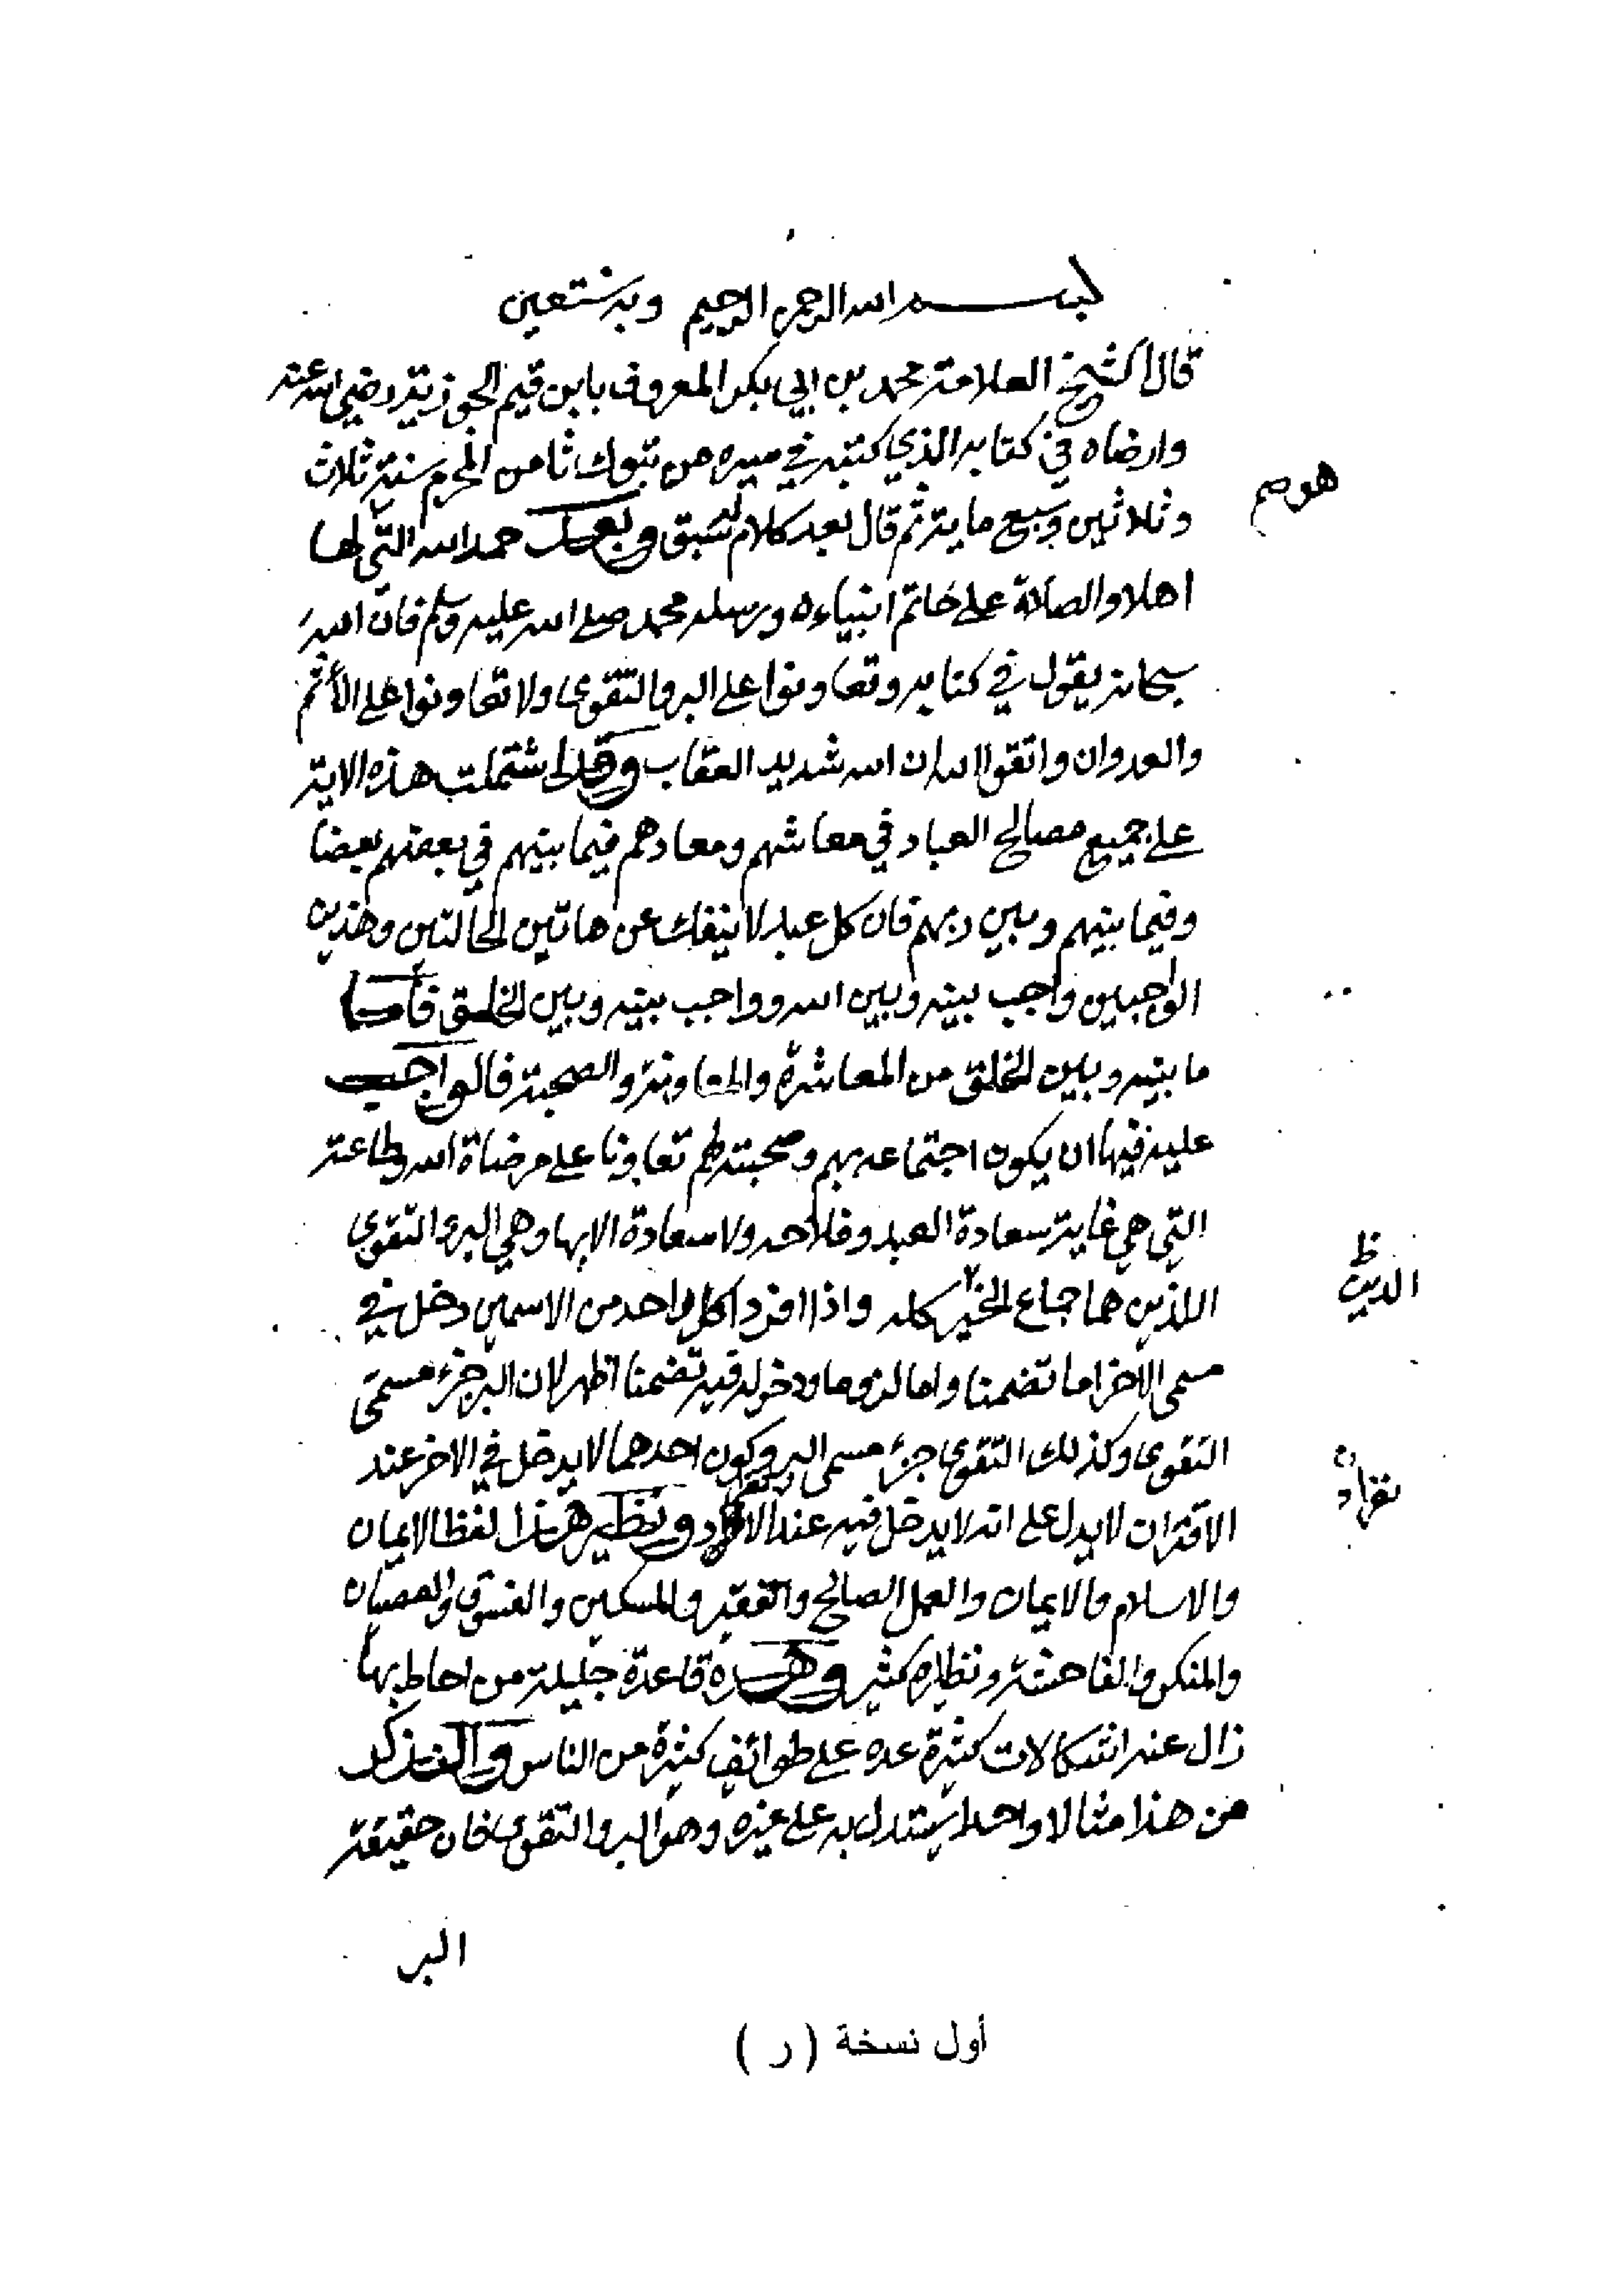 بسم الله الرحمن الرحيم وبه نستعين
قال الشيخ العلامة محمد بن ابي بكر المعروف بابن قيم الجوزية رضي الله عنه
وارضاه في كتابه الذي كتبه في مسيره من تبوك ثامن المحرم سنة ثلاث
وثلاثين وسبع ماية ثم قال بعد كلام له سبق وبعد حمد الله التي لها
هو صم
اهلا والصلاة على خاتم انبياءه ورسله محمد صلى الله عليه وسلم فان الله
سبحانه يقول في كتابه وتعاونوا على البر والتقوى ولا تعاونوا على الأثم
والعدوان واتقوا الله ان الله شديد العقاب وقد اشتملت هذه الاية
على جميع مصالح العباد في معاشهم ومعادهم فيما بينهم في بعضهم بعضا
وفيما بينهم وبين ربهم فان كل عبد لا ينفك عن هاتين الحالتين وهذين
الواجبين واجب بينه وبين الله وواجب بينه وبين الخلق فأما
ما بينه وبين الخلق من المعاشرة والمعاونة والصحبة فالواجب
عليه فيها ان يكون اجتماعه بهم وصحبته لهم تعاونا على مرضاة الله وطاعته
التي هي غاية سعادة العبد وفلاحه ولا سعادة الا بها وهي البر والتقوى
اللذين هما جماع الخير كله واذا افرد كل واحد من الاسمين دخل في
ظ
الدين
مسمى الآخر اما تضمنا واما لزوما ودخوله فيه تضمنا اظهر لان البر جزء مسمى
التقوى وكذلك التقوى جزء مسمى البر وكون احدهما لا يدخل في الاخر عند
الاقتران لا يدل على انه لا يدخل فيه عند الانفراد ونظير هذا لفظ الايمان
والاسلام والايمان والعمل الصالح والفقير والمسكين والفسوق والعصيان
والمنكر والفاحشة ونظايره كثير وهذه قاعدة جليلة من احاط بها
زال عنه اشكالات كثيرة عده على طوائف كثيرة من الناس ولنذكر
من هذا مثالا واحدا يستدل به على غيره وهو البر والتقوى فان حقيقة
البر
أول نسخة ( ر )